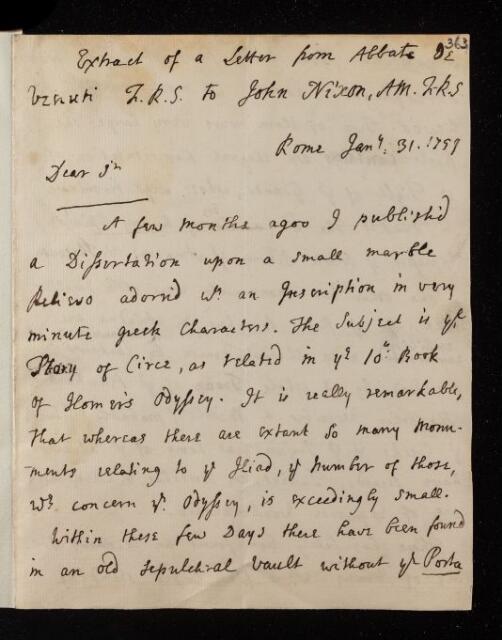 363
Extract of a Letter from Abbate De
Venuti F.R.S. to John Nixon, AM. F.R.S
Rome Jany. 31. 1759
Dear Sr
A few months agoo I publish'd
a Dissertation upon a small marble
Relievo adorn'd wth. an Inscription in very
minute greek Characters. The Subject is ye
Story of Circe, as related in ye 10th Book
of Homers Odyssey. It is really remarkable,
that whereas there are extant so many Monu-
ments relating to ye Iliad, ye Number of those,
wch concern ye Odyssey, is exceedingly small.
Within these few Days there have been found
in an old sepulchral vault without ye Porta